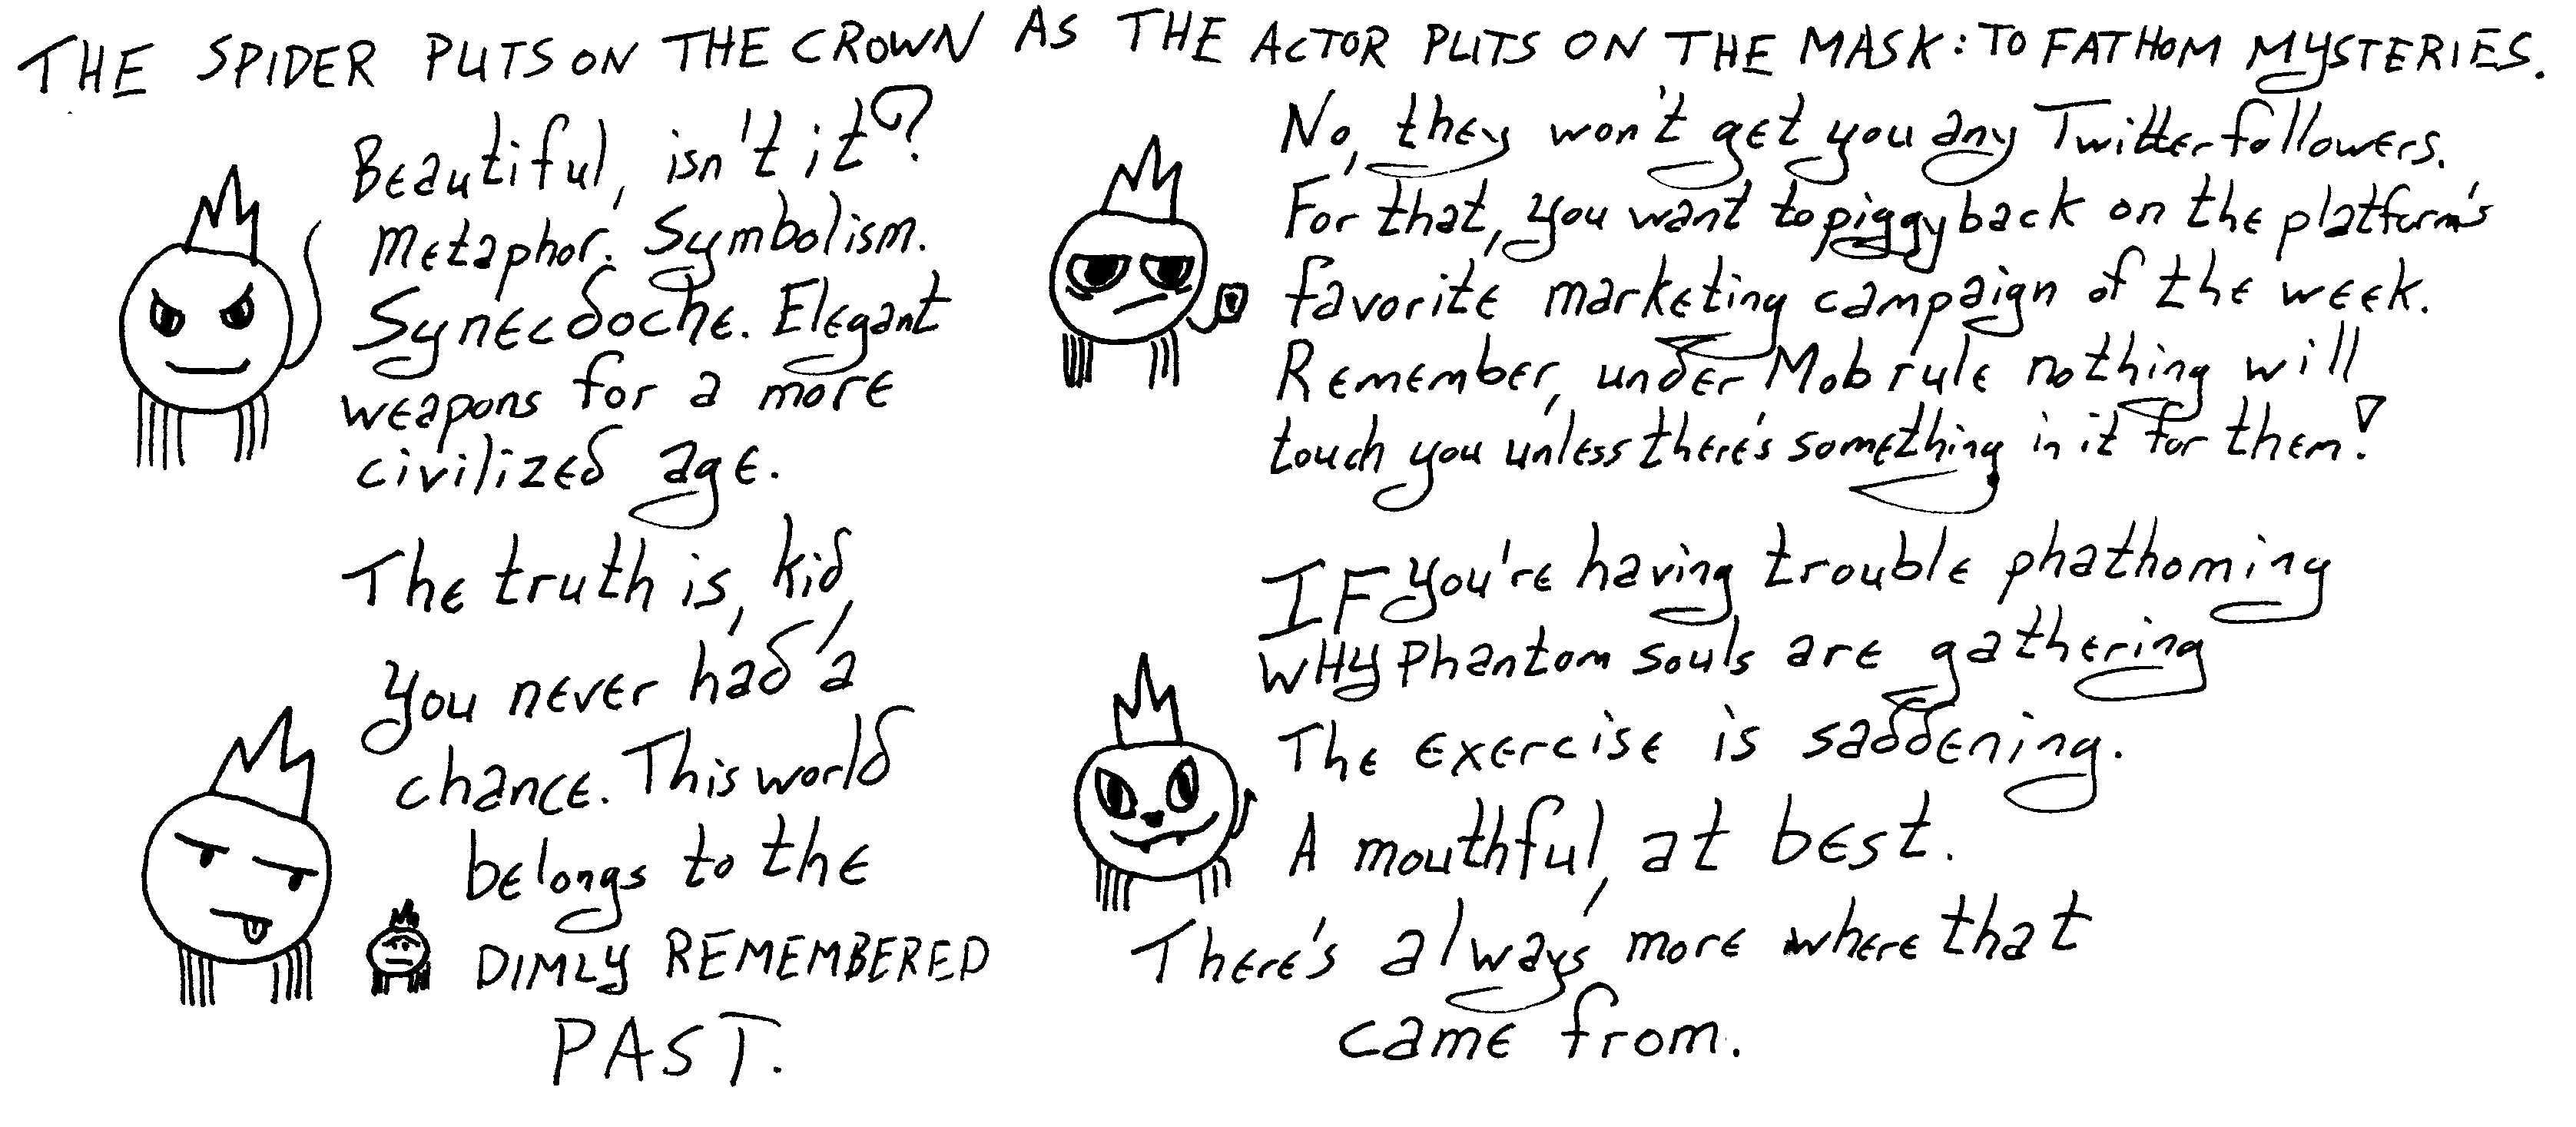 THE SPIDER PUTS ON THE CROWN AS THE ACTOR PUTS ON THE MASK: TO FATHOM MYSTERIES.
Beautiful, isn't it?
Metaphor. Symbolism.
Synecdoche. Elegant
weapons for a more
civilized age.
The truth is, kid,
you never had a
chance. This world
belongs to the
DIMLY REMEMBERED
PAST.
No, they won't get you any Twitter followers.
For that, you want to piggyback on the platform's
favorite marketing campaign of the week.
Remember, under Mob rule nothing will
touch you unless there's something in it for them!
IF you're having trouble phathoming
WHY Phantom souls are gathering
The exercise is saddening.
A mouthful, at best.
There's always more where that
came from.